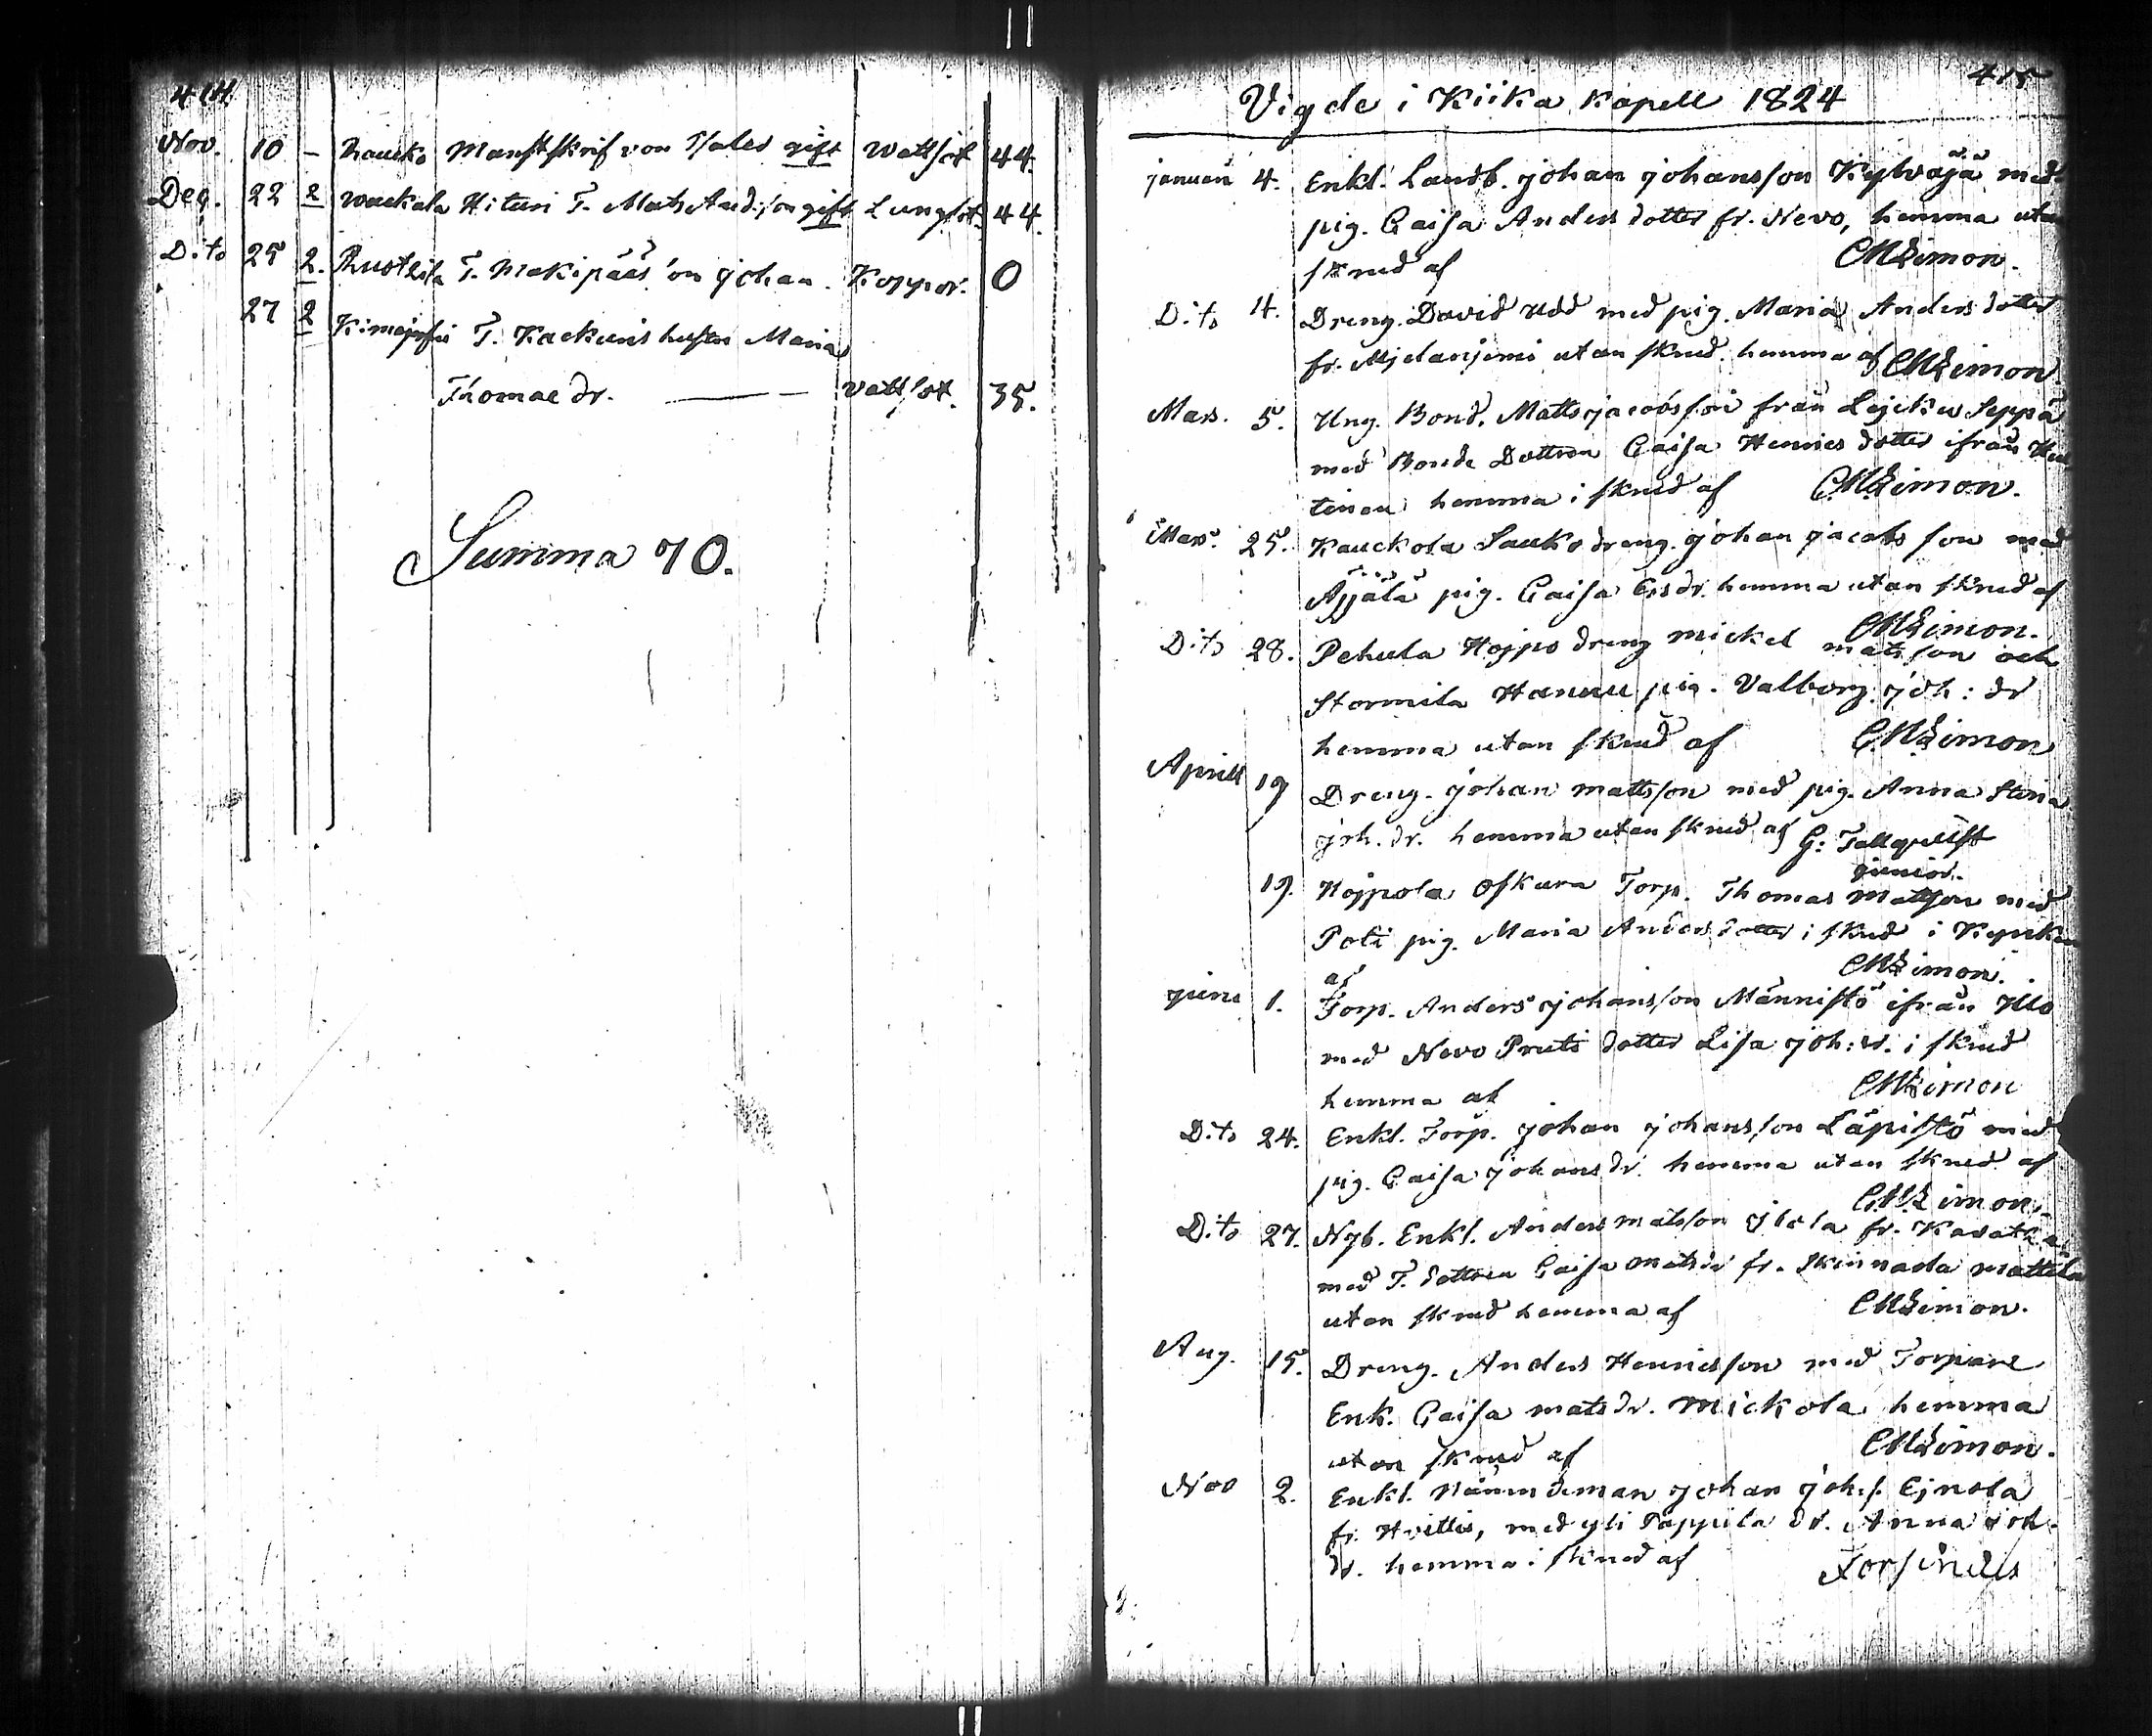 414
Nov. 10 – Lauko Manst skrif von Hales gift Wattsot 44.
Dec. 22 2 Wackala Hituri T. Mats And:son gift Lungsot. 44.
Dito 25 2. Ruotsila T. Mäkipääs son Johan. Koppor. 0
27 2 Kimejnsii T. Kackuris hustru Maria
Thomae dr. — vattsot. 35.
Summa 70.
415
Vigde i Kiika Kapell 1824
Januari 4. Enkl. Landb. Johan Johansson Kylväjä med
pig. Caisa Anders dotter fr. Nevo, hemma utan
skrud af CMLimon.
Dito 4. Dreng. David Udd med pig. Maria Anders dotter
fr. utan skrud hemma af CMLimon
Mars. 5. Ung. Bond. Matts Jacobsson från Lejcku Seppä
med Bonde Dottren Caisa Henrics dotter ifrån
tinen hemma i skrud af CMLimon.
Mars. 25. Kauckola Sauko dreng. Johan Jacobs son med
Äjjälä pig. Caisa Ersdr. hemma utan skrud af
CMLimon.
Dito 28. Pehula Hojpo dreng Mickel Matsson och
Stormila Hannu pig. Valborg Joh: dr
hemma utan skrud af CMLimon
Aprill 19 Dreng. Johan Mattsson med pig. Anna Stina
Joh. dr. hemma utan skrud af G: Tallqvist
junior.
19. Hojpola Oskara Torp. Thomas Mattson med
Poti pig. Maria Anders dotter i skrud i Kyrkan
af CMLimon.
Juni 1. Torp. Anders Johansson Männistö ifrån Illo
med Nevo Pruti dotter Lisa Joh: dr. i skrud
hemma af CMLimon
Dito 24. Enkl. Torp. Johan Johansson Läpistö med
pig. Caisa Johansdr. hemma utan skrud af
CMLimon.
Dito 27. Nyb. Enkl. Anders Matsson Jlola fr.
med T. dottren Caisa Matsdr fr. Skinnada Mattila
utan skrud hemma af CMLimon.
Aug. 15. Dreng. Anders Henricsson med Torpare
Enk. Caisa Matsdr. Mickola hemma
utan skrud af CMLimon.
Nov 2. Enkl. Nämndeman Johan Joh.s. Ejnola
fr. Hvittis, med Yli Pappila dr. Anna Joh.
dr. hemma i skrud af Forselius